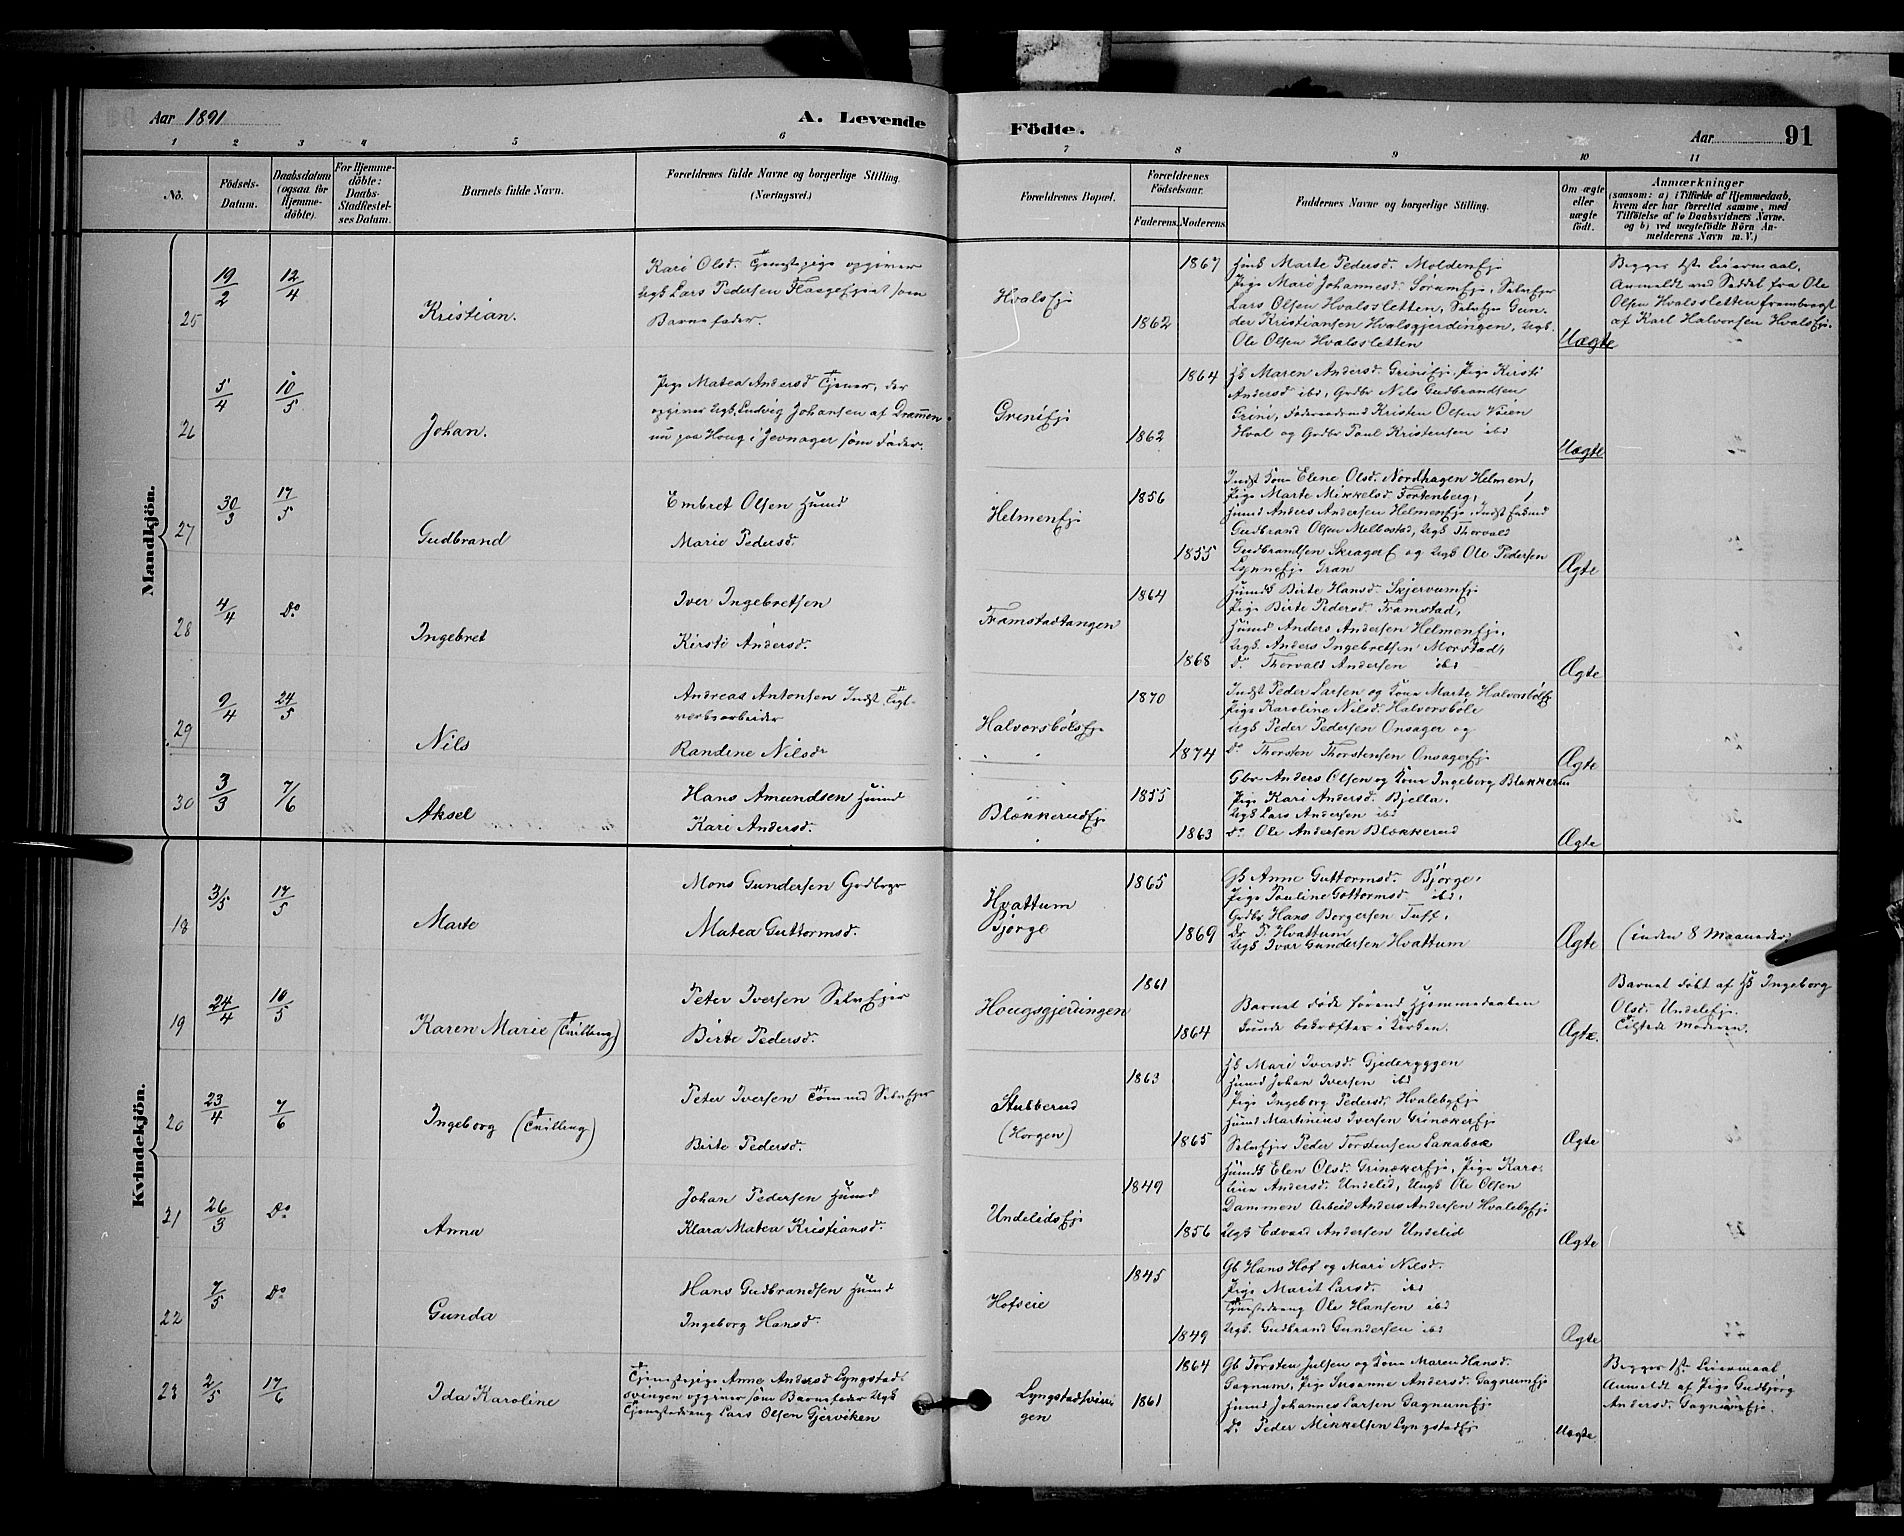 Aar 1891
A. Levende
Födte.
Aar
91
1 2 3 4 5 6 7 8 9 10 11
No.
Födsels-
Datum.
Daabsdatum
(ogsaa for
Hjemme-
döbte).
For Hjemme-
döbte:
Daabs-
Stadfæstel-
ses Datum.
Barnets fulde Navn.
Forældrenes fulde Navne og borgerlige Stilling.
(Næringsvei.)
Forældrenes Bopæl.
Forældrenes
Födselsaar.
Faderens. Moderens.
Faddernes Navne og borgerlige Stilling.
Om ægte
eller
uægte
födt.
Anmærkninger
(saasom: a) i Tilfælde af Hjemmedaab,
hvem der har forrettet samme, med
Tilföielse af to Daabsvidners Navne.
og b) ved uægtefödte Börn An-
melderens Navn m. V.)
Mandkjön.
25
19/2
12/4
Kristian.
Kari Olsd. Tjenestepige opgiver
Ugk Lars Pedersen Flaagefjeist som
Barnefader.
Hvalsej
1867
1862
Hmk Marte Pedersd. Moldenej
Pige Mari Johannesd. Sørumej, Selvejer
Lars Olsen Hvalssletten, Selvejer Gun-
der Kristiansen Hvalsgjerdingen, Ugk.
Ole Olsen Hvalssletten
Uægte
Begges 1ste Leiermaal,
Anmeldt ved Seddel fra Ole
Olsen Hvalssletten frembragt
af Karl Halvorsen Hvalsej.
26
5/4
10/5
Johan.
Pige Matea Andersd Tjener, der
opgiver Ugk. Ludvig Johansen af Drammen
nu paa Houg i Jevnager som Fader.
Griniej
1864
1862
Hk Maren Andersd. Griniej, Pige Kirsti
Andersd ibd, Grdbr Nils Gudbrandsen
Grini, Føderaadsmd Kristen Olsen Veien
Hval og Grdbr Paul Kristensen ibd
Uægte
27
30/3
17/5
Gudbrand
Embret Olsen Husmd
Marie Pedersd.
Helmenej
1856
1855
Indst Kone Elene Olsd. Nordhagen Helmen,
Pige Marte Mikkelsd. Fortenberg,
Husmd Anders Andersen Helmenej, Indst Enkemd
Gudbrand Olsen Melbostad, Ugk Thorvald
Gudbrandsen SkragerE og Ugk Ole Pedersen
Lynneej Gran
Ægte
28
4/4
Do
Ingebret
Iver Ingebretsen
Kirsti Andersd.
Framstadtangen
1864
1868
Husmds Birte Hansd. Skjervumej
Pige Birte Pedersd. Framstad,
Husmd Anders Andersen Helmenej,
Ugk. Anders Ingebretsen Morstad,
Do Thorvald Andersen ibd
Ægte
29
9/4
24/5
Nils
Andreas Antonsen Indst. Tegl-
værksarbeider
Randine Nilsdr
Halvorsbølsej
1870
1874
Indst Peder Larsen og Kone Marte Halvorsbølej
Pige Karoline Nilsd. Halvorsbøle
Ugk Peder Pedersen Onsager og
Do Thorsten Thorstensen Onsagerej
Ægte
30
3/3
7/6
Aksel
Hans Amundsen Husmd
Kari Andersd.
Blækkerudej
1855
1863
Gbr Anders Olsen og Kone Ingeborg Blækkerud
Pige Kari Andersd. Bjella.
Ugk Lars Andersen ibd
Do Ole Andersen Blækkerud
Ægte
Kvindekjön.
18
3/5
17/5
Marte
Mons Gundersen Grdbrgr
Matea Guttormsd.
Hvattum
Bjørge
1865
1869
Gk Anne Guttormsd. Bjørge,
Pige Pauline Gottormsd. ibd,
Grdbr Hans Borgersen Tuff,
Do P. Hvattum
Ugk Ivar Gundersen Hvattum
Ægte
(inden 8 Maaneder)
19
24/4
10/5
Karen Marie (Tvilling)
Peter Iversen Selvejer
Birte Pedersd.
Hougsgjerdingen
1861
1864
Barnet døde førend Hjemmedaaben
kunde bekræftes i Kirken.
Ægte.
Barnet døbt af Hk Ingeborg
Olsd. Undeliej.
Tilstede Moderen.
20
23/4
7/6
Ingeborg (Tvilling)
Peter Iversen Tømmd Selvejer
Birte Pedersd.
Stubberud
(Horgen)
1863
1865
Hk Mari Iversd. Gjederyggen
Husmd Johan Iversen ibd
Pige Ingeborg Pedersd. Hvalebyej
Husmd Martinius Iversen Grinakerej
Selvejer Peder Torstensen Lakabæk
Ægte
21
26/3
Do
Anna
Johan Pedersen Husmd
Klara Matea Kristiansd.
Undelidsej
1849
1856
Husmds Elen Olsd. Grinakerej, Pige Karo-
line Andersd. Undelid, Ungk Ole Olsen
Dammen Arbeid Anders Andersen Hvalebyej
Ugk Edvard Andersen Undelid
Ægte
22
7/5
Do
Gunda
Hans Gudbrandsen Husmd
Ingeborg Hansd.
Hofseie
1845
1849
Gb Hans Hof og Mari Nilsd.
Pige Marit Larsd. ibd
Tjenestedreng Ole Hansen ibd
Ugk. Gudbrand Gundersen ibd
Ægte
23
2/5
17/6
Ida Karoline
Tjenestepige Anne Andersd Lyngstad-
svingen opgiver som Barnefader Ugk
Tjenestedreng Lars Olsen Gjerviken
Lyngstadsvin-
gen
1864
1861
Gb Torsten Julsen og Kone Maren Hansd.
Gagnum, Pige Susanne Andersd. Gagnumej
Husmd Johannes Larsen Gagnumej
Do Peder Mikkelsen Lyngstadej
Uægte
Begges 1ste Leiermaal
Anmeldt af Pige Gudbjørg
Andersd. Gagnumej.